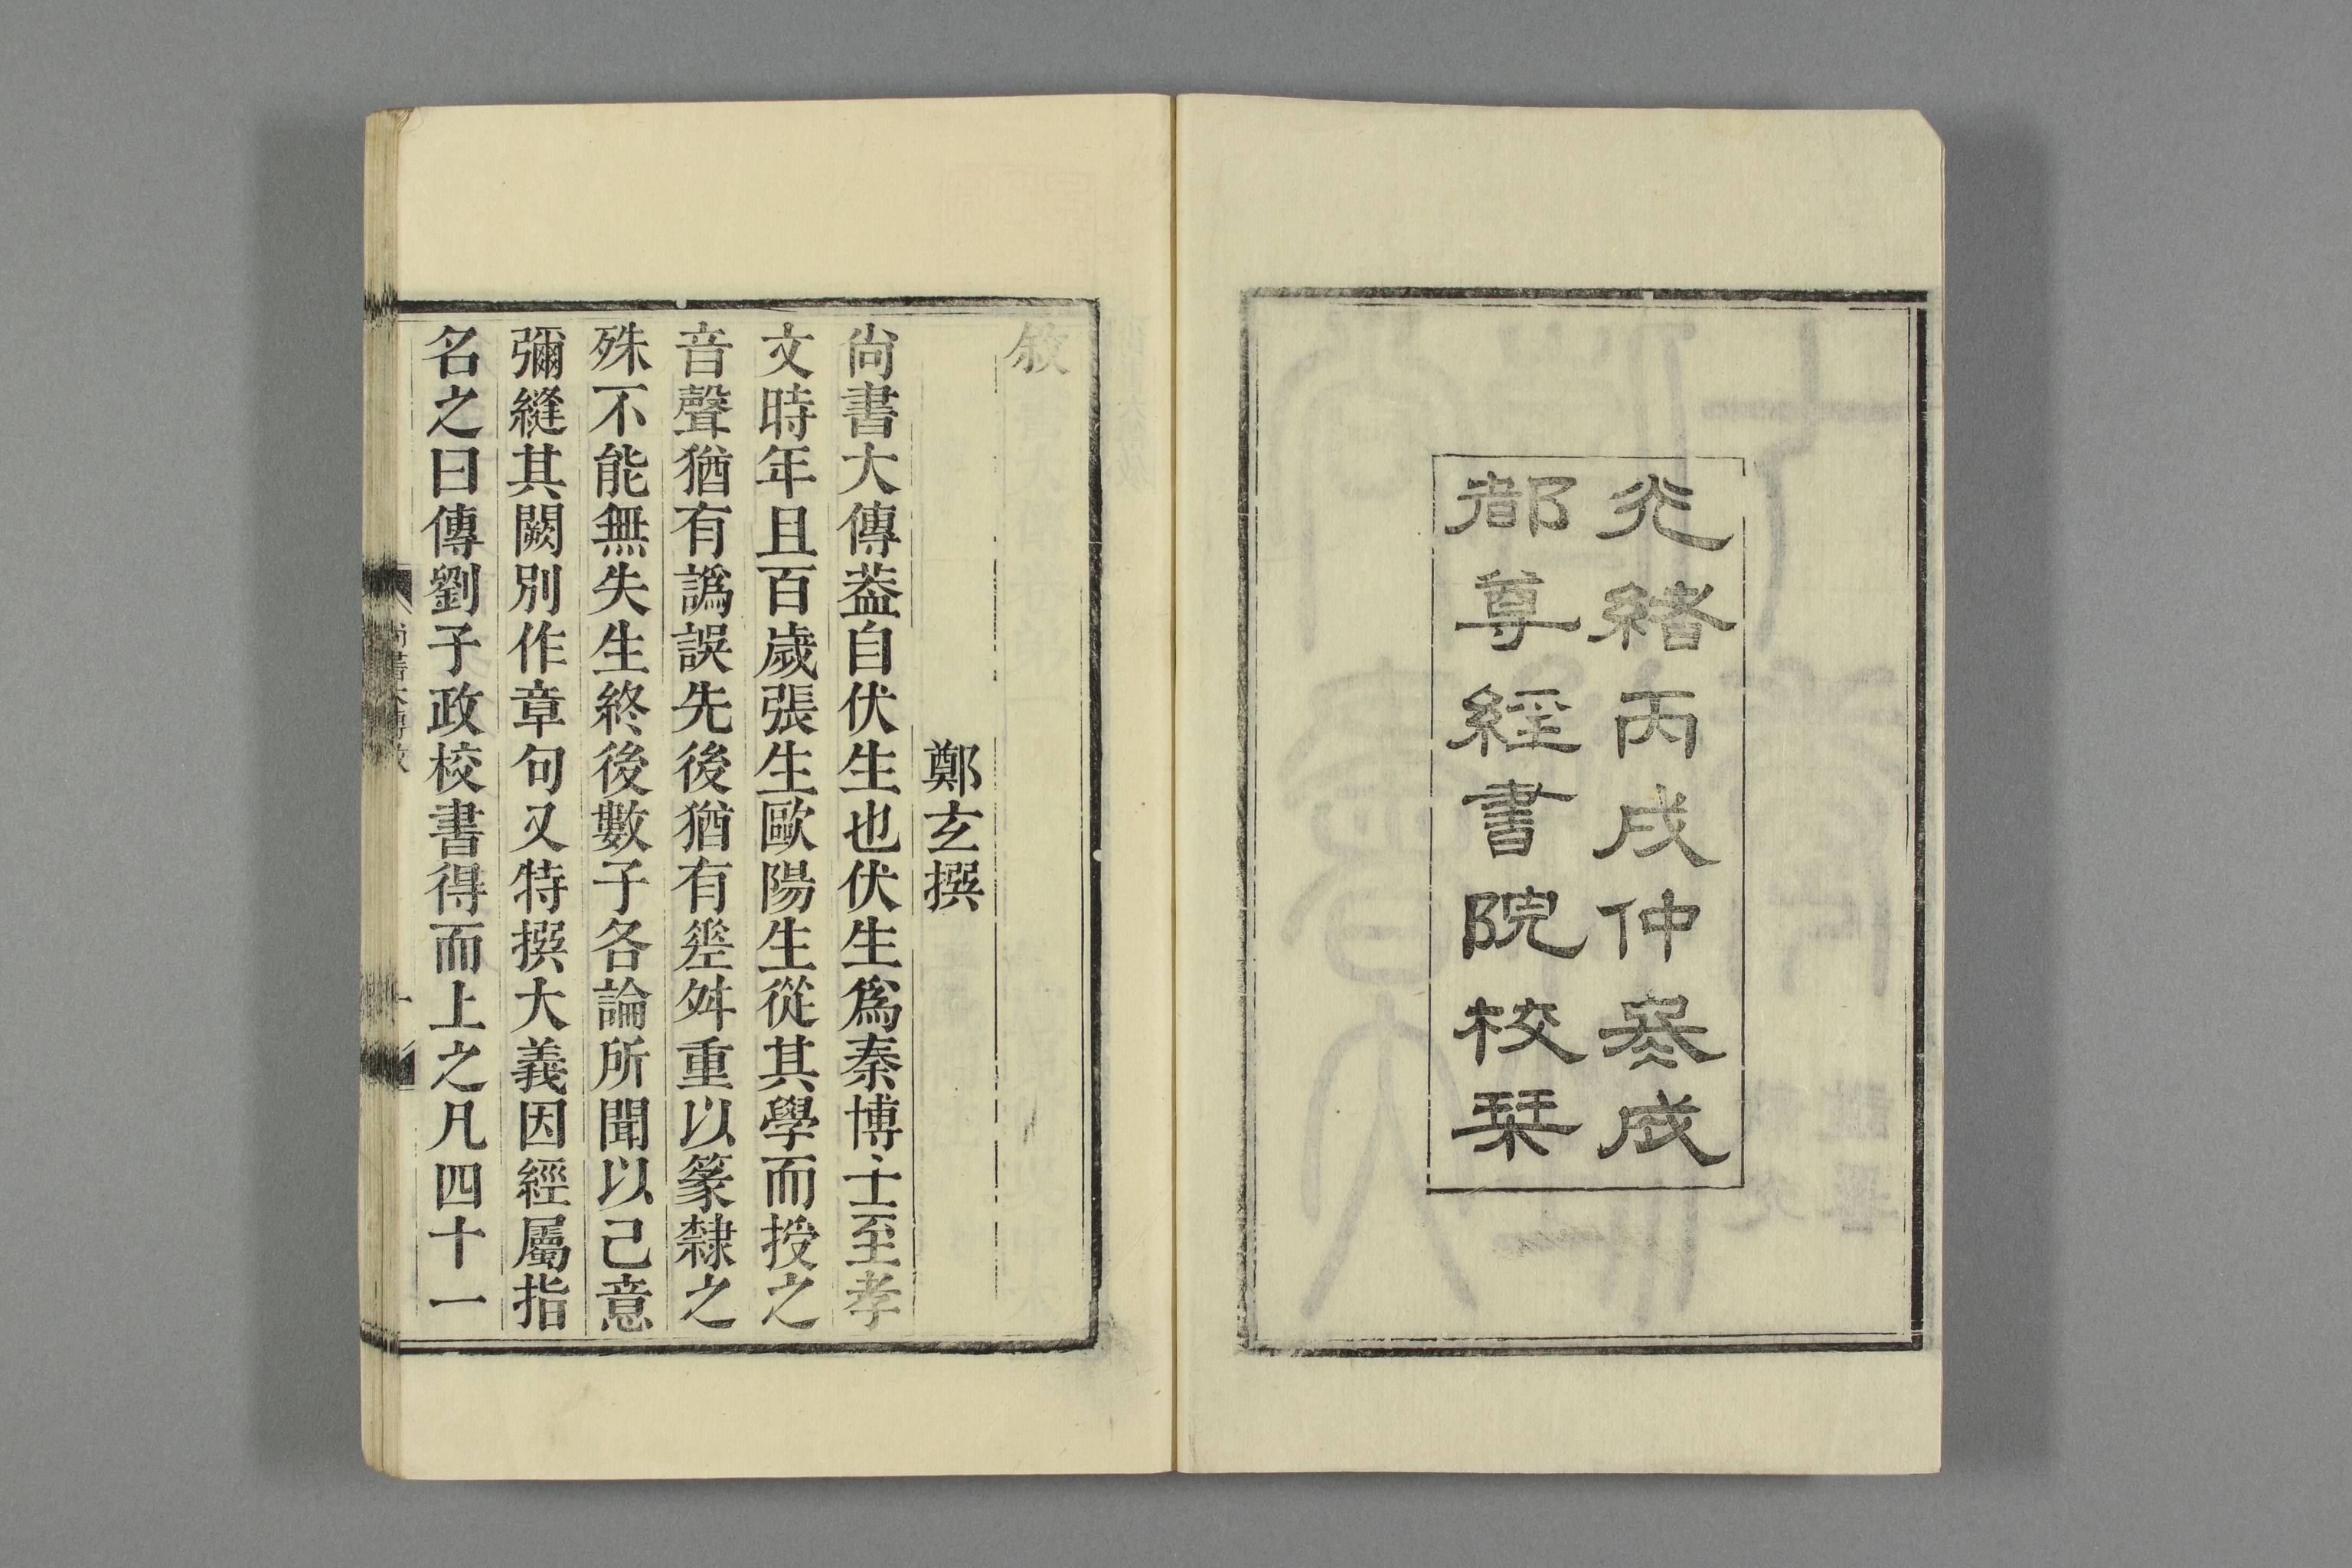 光緒丙戌仲冬成
都尊經書院校栞
敘
鄭玄撰
尙書大傳葢自伏生也伏生爲秦博士至孝
文時年且百歲張生歐陽生從其學而授之
音聲猶有譌誤先後猶有差舛重以篆隸之
殊不能無失生終後數子各論所聞以己意
彌縫其闕別作章句又特撰大義因經屬指
名之曰傳劉子政校書得而上之凡四十一
尚書大傳敘
一